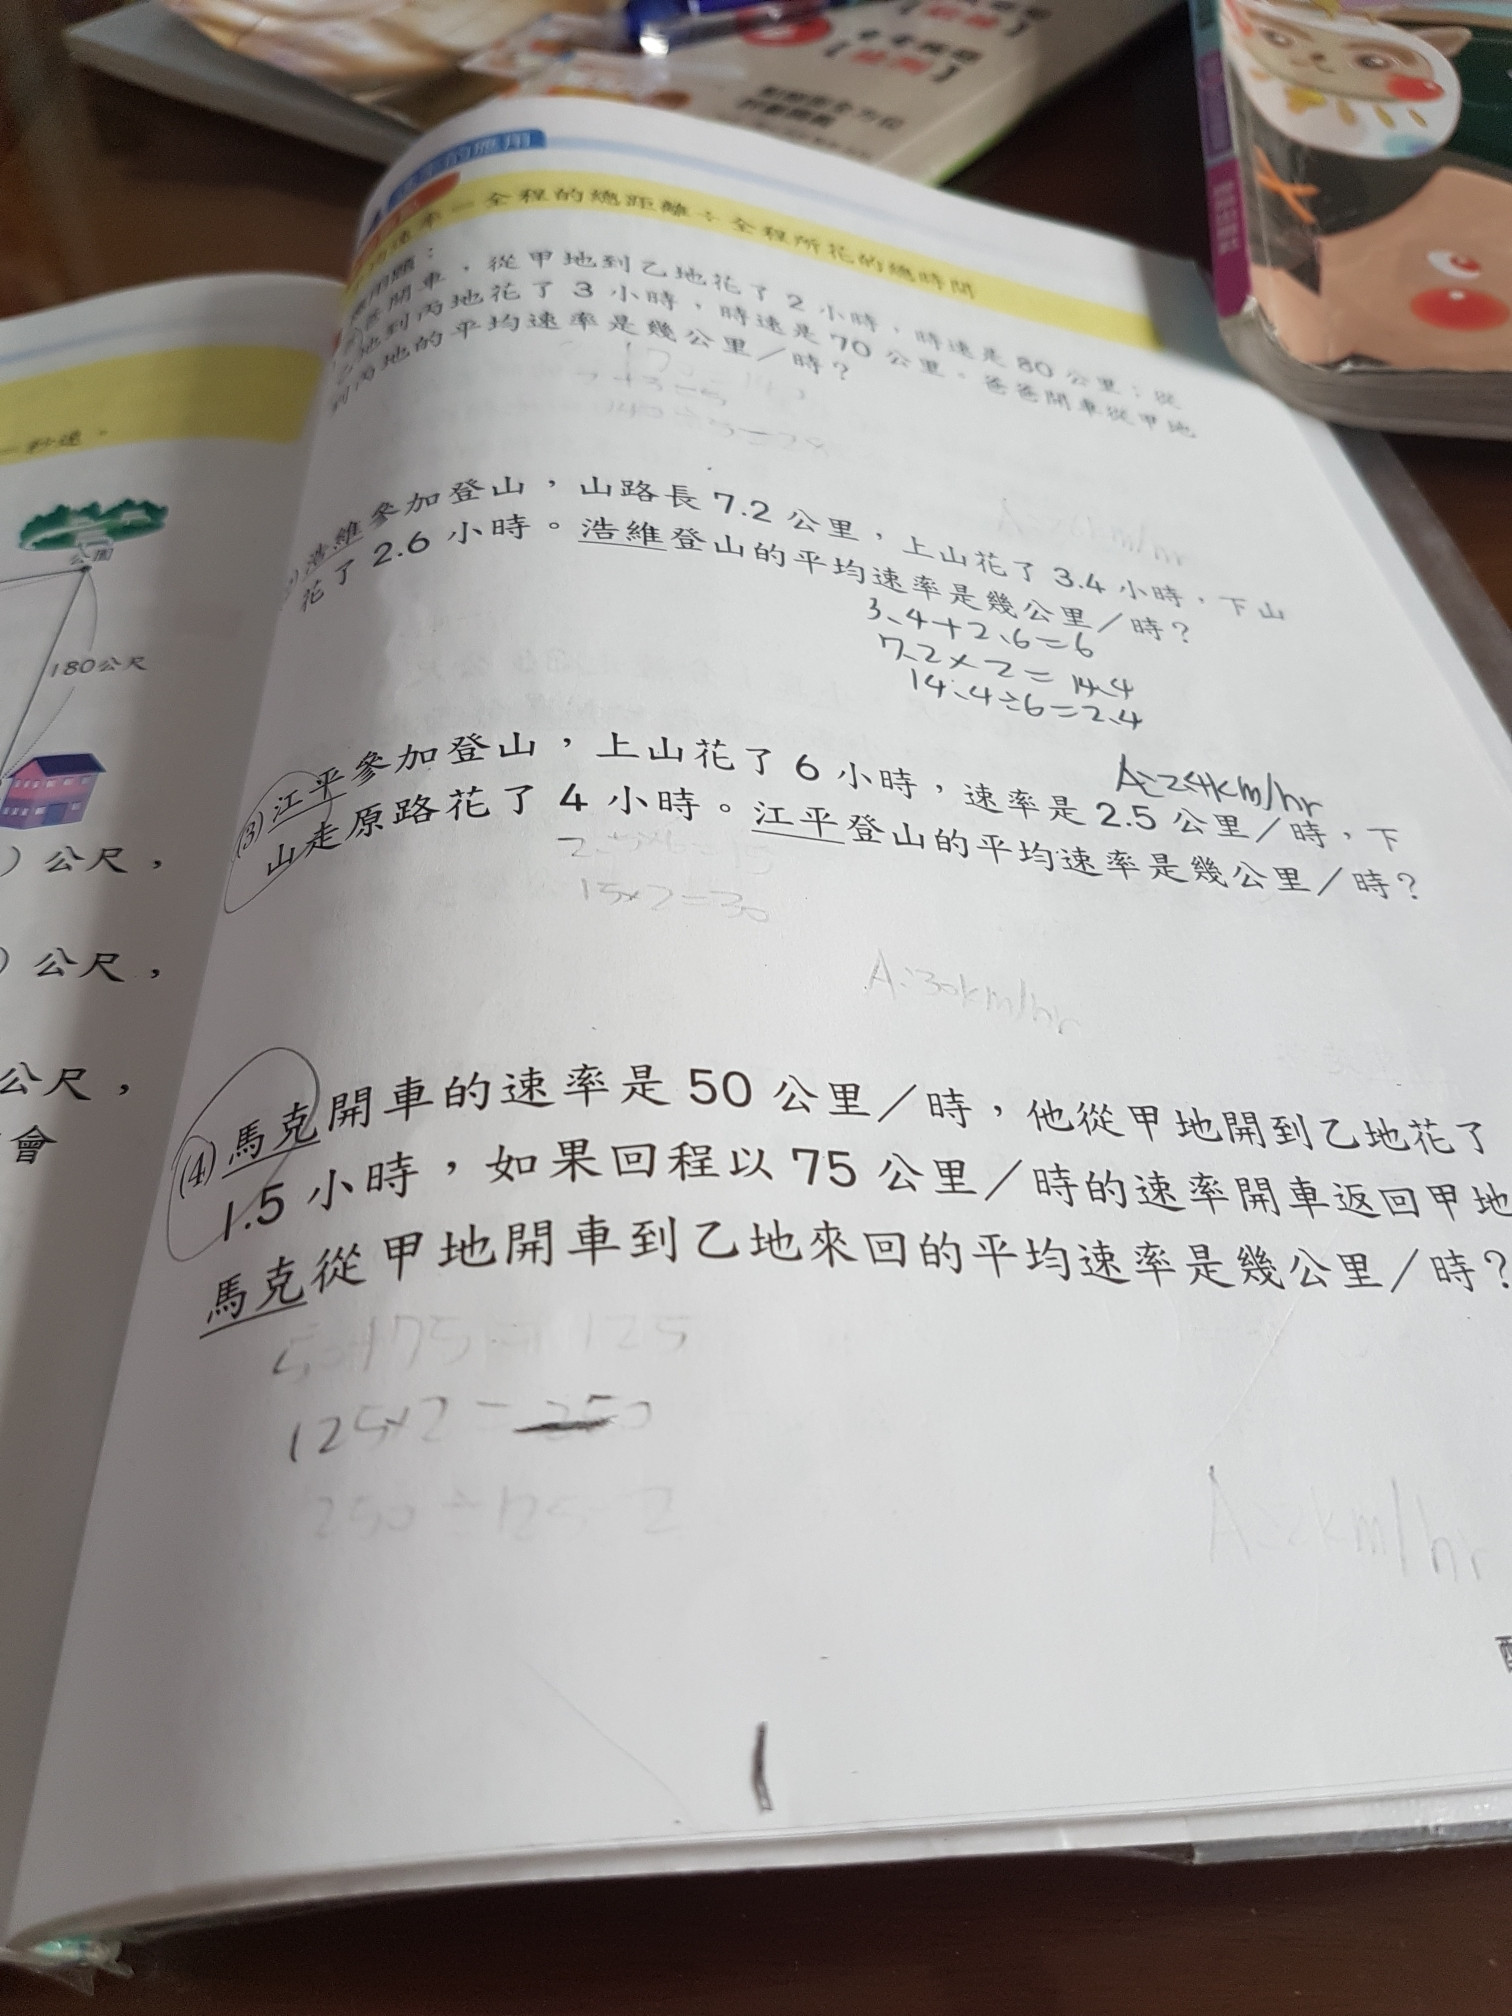 的應用
速率＝全程的總距離÷全程所花的總時間
應用題：
爸開車，從甲地到乙地花了 2 小時，時速是 80 公里；從
乙地到丙地花了 3 小時，時速是 70 公里。爸爸開車從甲地
到丙地的平均速率是幾公里／時？
浩維參加登山，山路長 7.2 公里，上山花了 3.4 小時，下山
花了 2.6 小時。浩維登山的平均速率是幾公里／時？
3.4+2.6=6
7.2×2=14.4
14.4÷6=2.4
A:2.4km/hr
(3) 江平參加登山，上山花了 6 小時，速率是 2.5 公里／時，下
山走原路花了 4 小時。江平登山的平均速率是幾公里／時？
15×2=30
A:30km/hr
(4) 馬克開車的速率是 50 公里／時，他從甲地開到乙地花了
1.5 小時，如果回程以 75 公里／時的速率開車返回甲地
馬克從甲地開車到乙地來回的平均速率是幾公里／時？
50+75=125
125×2=250
250÷125=2
A:2km/hr
秒速。
公園
180公尺
）公尺，
）公尺，
公尺，
會